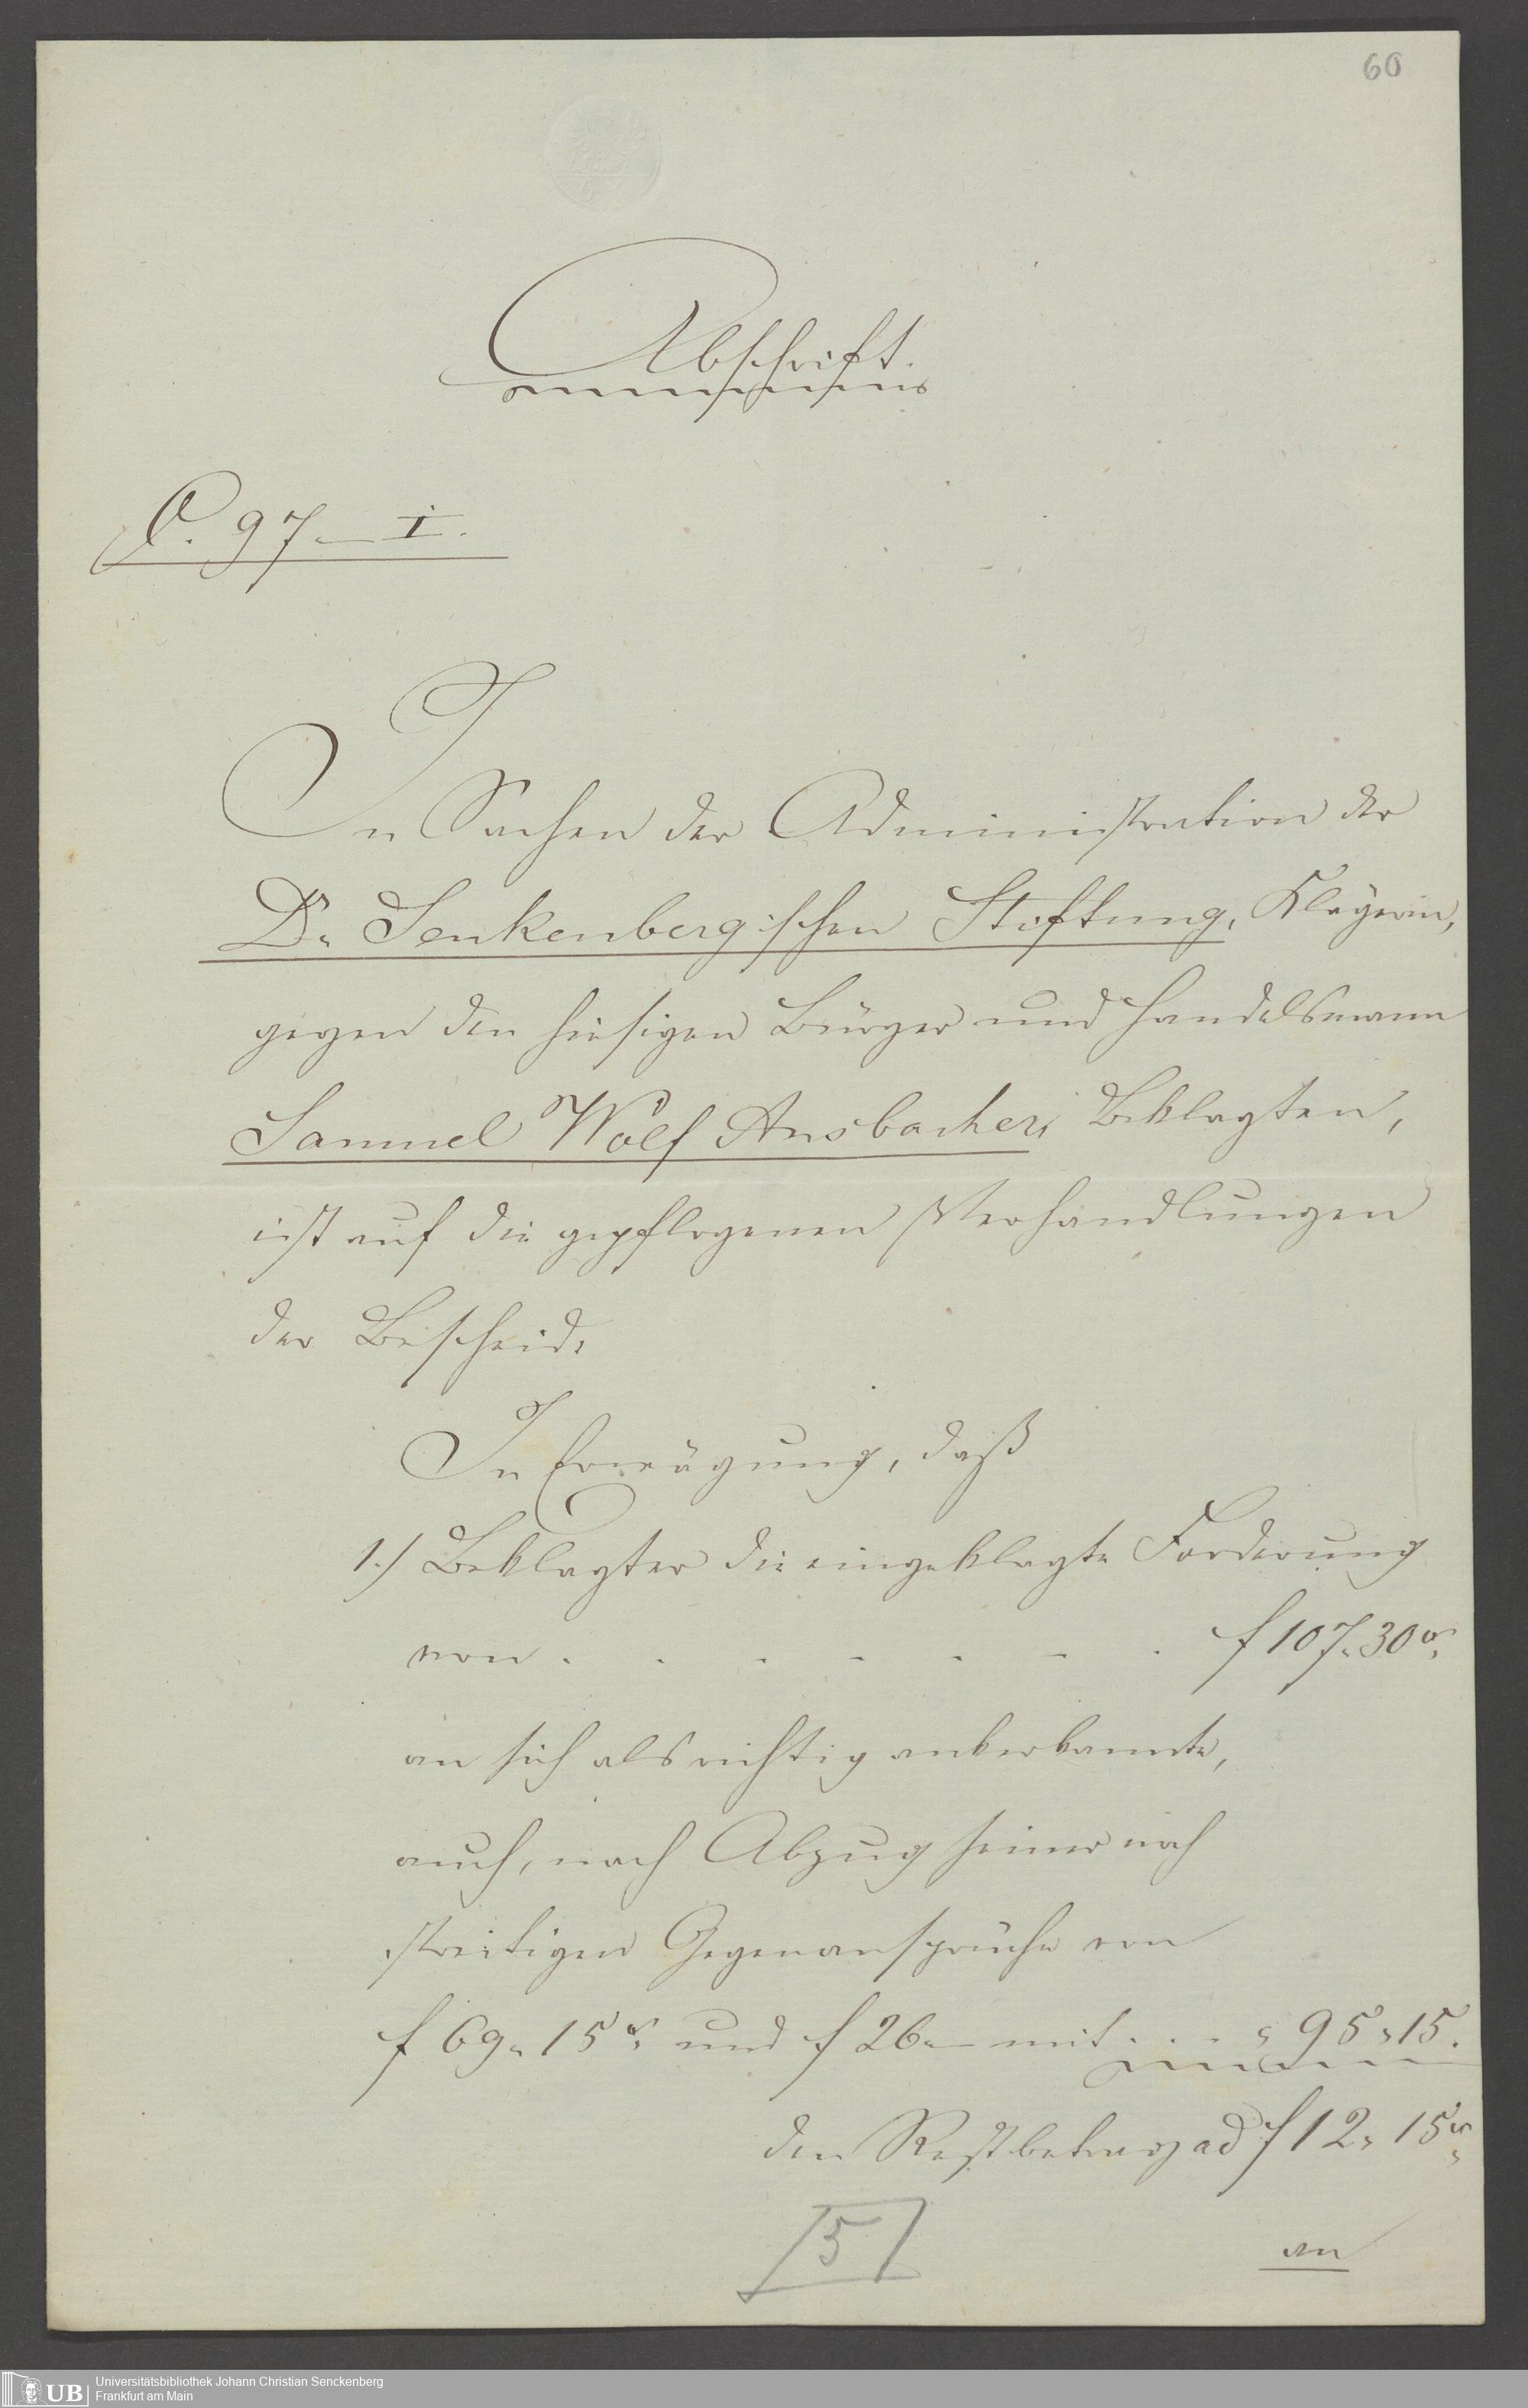 60
Abschrift.
C. 97 – I.
In Sachen der Administration der
Dr. Senkenberg'schen Stiftung, Klägerin,
gegen den hiesigen Bürger und Handelsmann
Samuel Wolf Ansbacher, Beklagten,
ist auf die gepflogenen Verhandlungen
der Bescheid:
In Erwägung, daß
1.) Beklagter die eingeklagte Forderung
von . . . . . . . f 107. 30 xr.
an sich als richtig anerkannte,
auch, nach Abzug seiner noch
streitigen Gegenansprüche von
f 69. 15 xr. und f 26. – mit . . . „ 95. 15.
den Restbetrag ad f 12. 15 xr.
an
5
UB Universitätsbibliothek Johann Christian Senckenberg
Frankfurt am Main